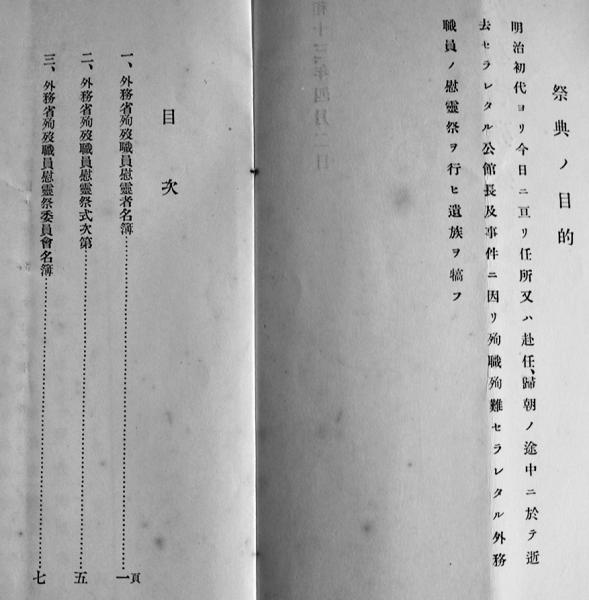 祭典ノ目的
明治初代ヨリ今日ニ亘リ任所又ハ赴任、歸朝ノ途中ニ於テ逝
去セラレタル公館長及事件ニ因リ殉職殉難セラレタル外務
職員ノ慰靈祭ヲ行ヒ遺族ヲ犒フ
和十三年四月二日
目次
一、外務省殉歿職員慰靈者名簿…………一頁
二、外務省殉歿職員慰靈祭式次第…………五
三、外務省殉歿職員慰靈祭委員會名簿…………七